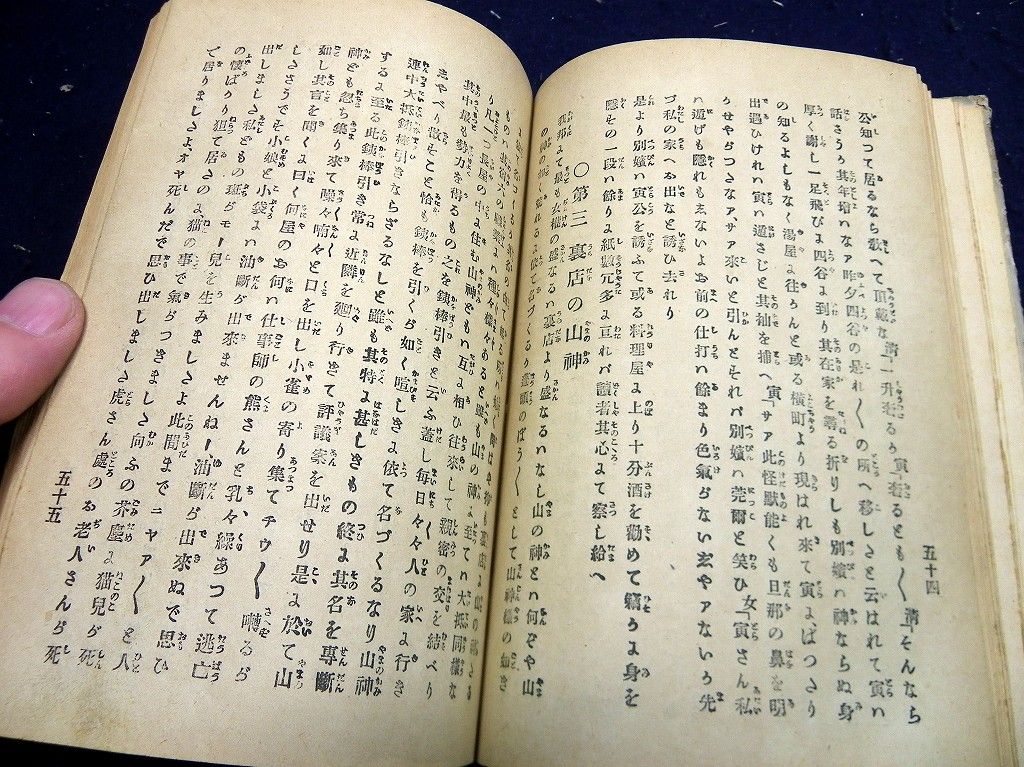 五十四
公知つて居るなら敎へて頂戴な 淸「一升奢るか 寅「奢るとも〱 淸「そんなら
話さうか其年増ハなア昨夕四谷の是れ〱の所へ移しさと云はれて寅ハ
厚く謝し一足飛びよ四谷よ到り其在家を尋る折りしも別嬪ハ神ならぬ身
の知るよしもなく湯屋よ往かんと或る橫町より現はれ來て寅よ、ばつさり
出遇ひけれハ寅ハ逋さじと其袖を捕へ 寅「サア此怪賦能くも旦那の鼻を明
かせやがつさなア、サア來いと引んとそれバ別嬪ハ莞爾と笑ひ 女「寅さん私
ハ遁げも隱れもゑないよお前の仕打ハ餘まり色氣がない玄やアないか先
づ私の家へお出なと誘ひ去れり
是より別嬪ハ寅公を誘ふて或る料理屋よ上り十分酒を勸めて竊かよ身を
隱その一段ハ餘りよ紙數冗多よ亘れバ讀者其心よて察し給へ
〇第三 裏店の山神
我邦よて最も女權の盛なるハ裏店より盛なるハなし山の神とハ何ぞや山
の神の如く として山神樣の如き
ものハ其 大の よハ種々樣々あると雖も山の神よ至てハ大抵同樣な
り凡一つ長屋の中よ住む山神どもハ互よ相ひ往來して親密の交を結べり
其中最も勢力を得るもの之を鐵棒引きと云ふ蓋し毎日々々人の家よ行き
志やべり散そこと恰も鐵棒を引くが如く喧しきよ依て名づくるなり山神
連中大抵鐵棒引きならざるなしと雖も其特よ甚しきもの終よ其名を專斷
するよ至る此鐵棒引き常よ近隣を廻り行きて評議案を出せり是よ於て山
神ども忽ち集り來て噪々喃々と口を出し小雀の寄り集てチウ〱囀るが
如し其言を聞くよ曰く何屋のお何ハ仕事師の熊さんと乳々繰あつて逃亡
しさうで小娘と小袋よハ油斷が出來ませんねー、油斷が出來ぬで思ひ
出しましさ私どもの斑がモー兒を生みましさよ此間までニヤア〱と人
の懷ばかり狙て居さのよ、猫の事で氣がつきましさ向ふの芥塵よ猫兒が死
で居りましさよ、オヤ死んだで思ひ出しましさ虎さん處のお老人さんが死
五十五